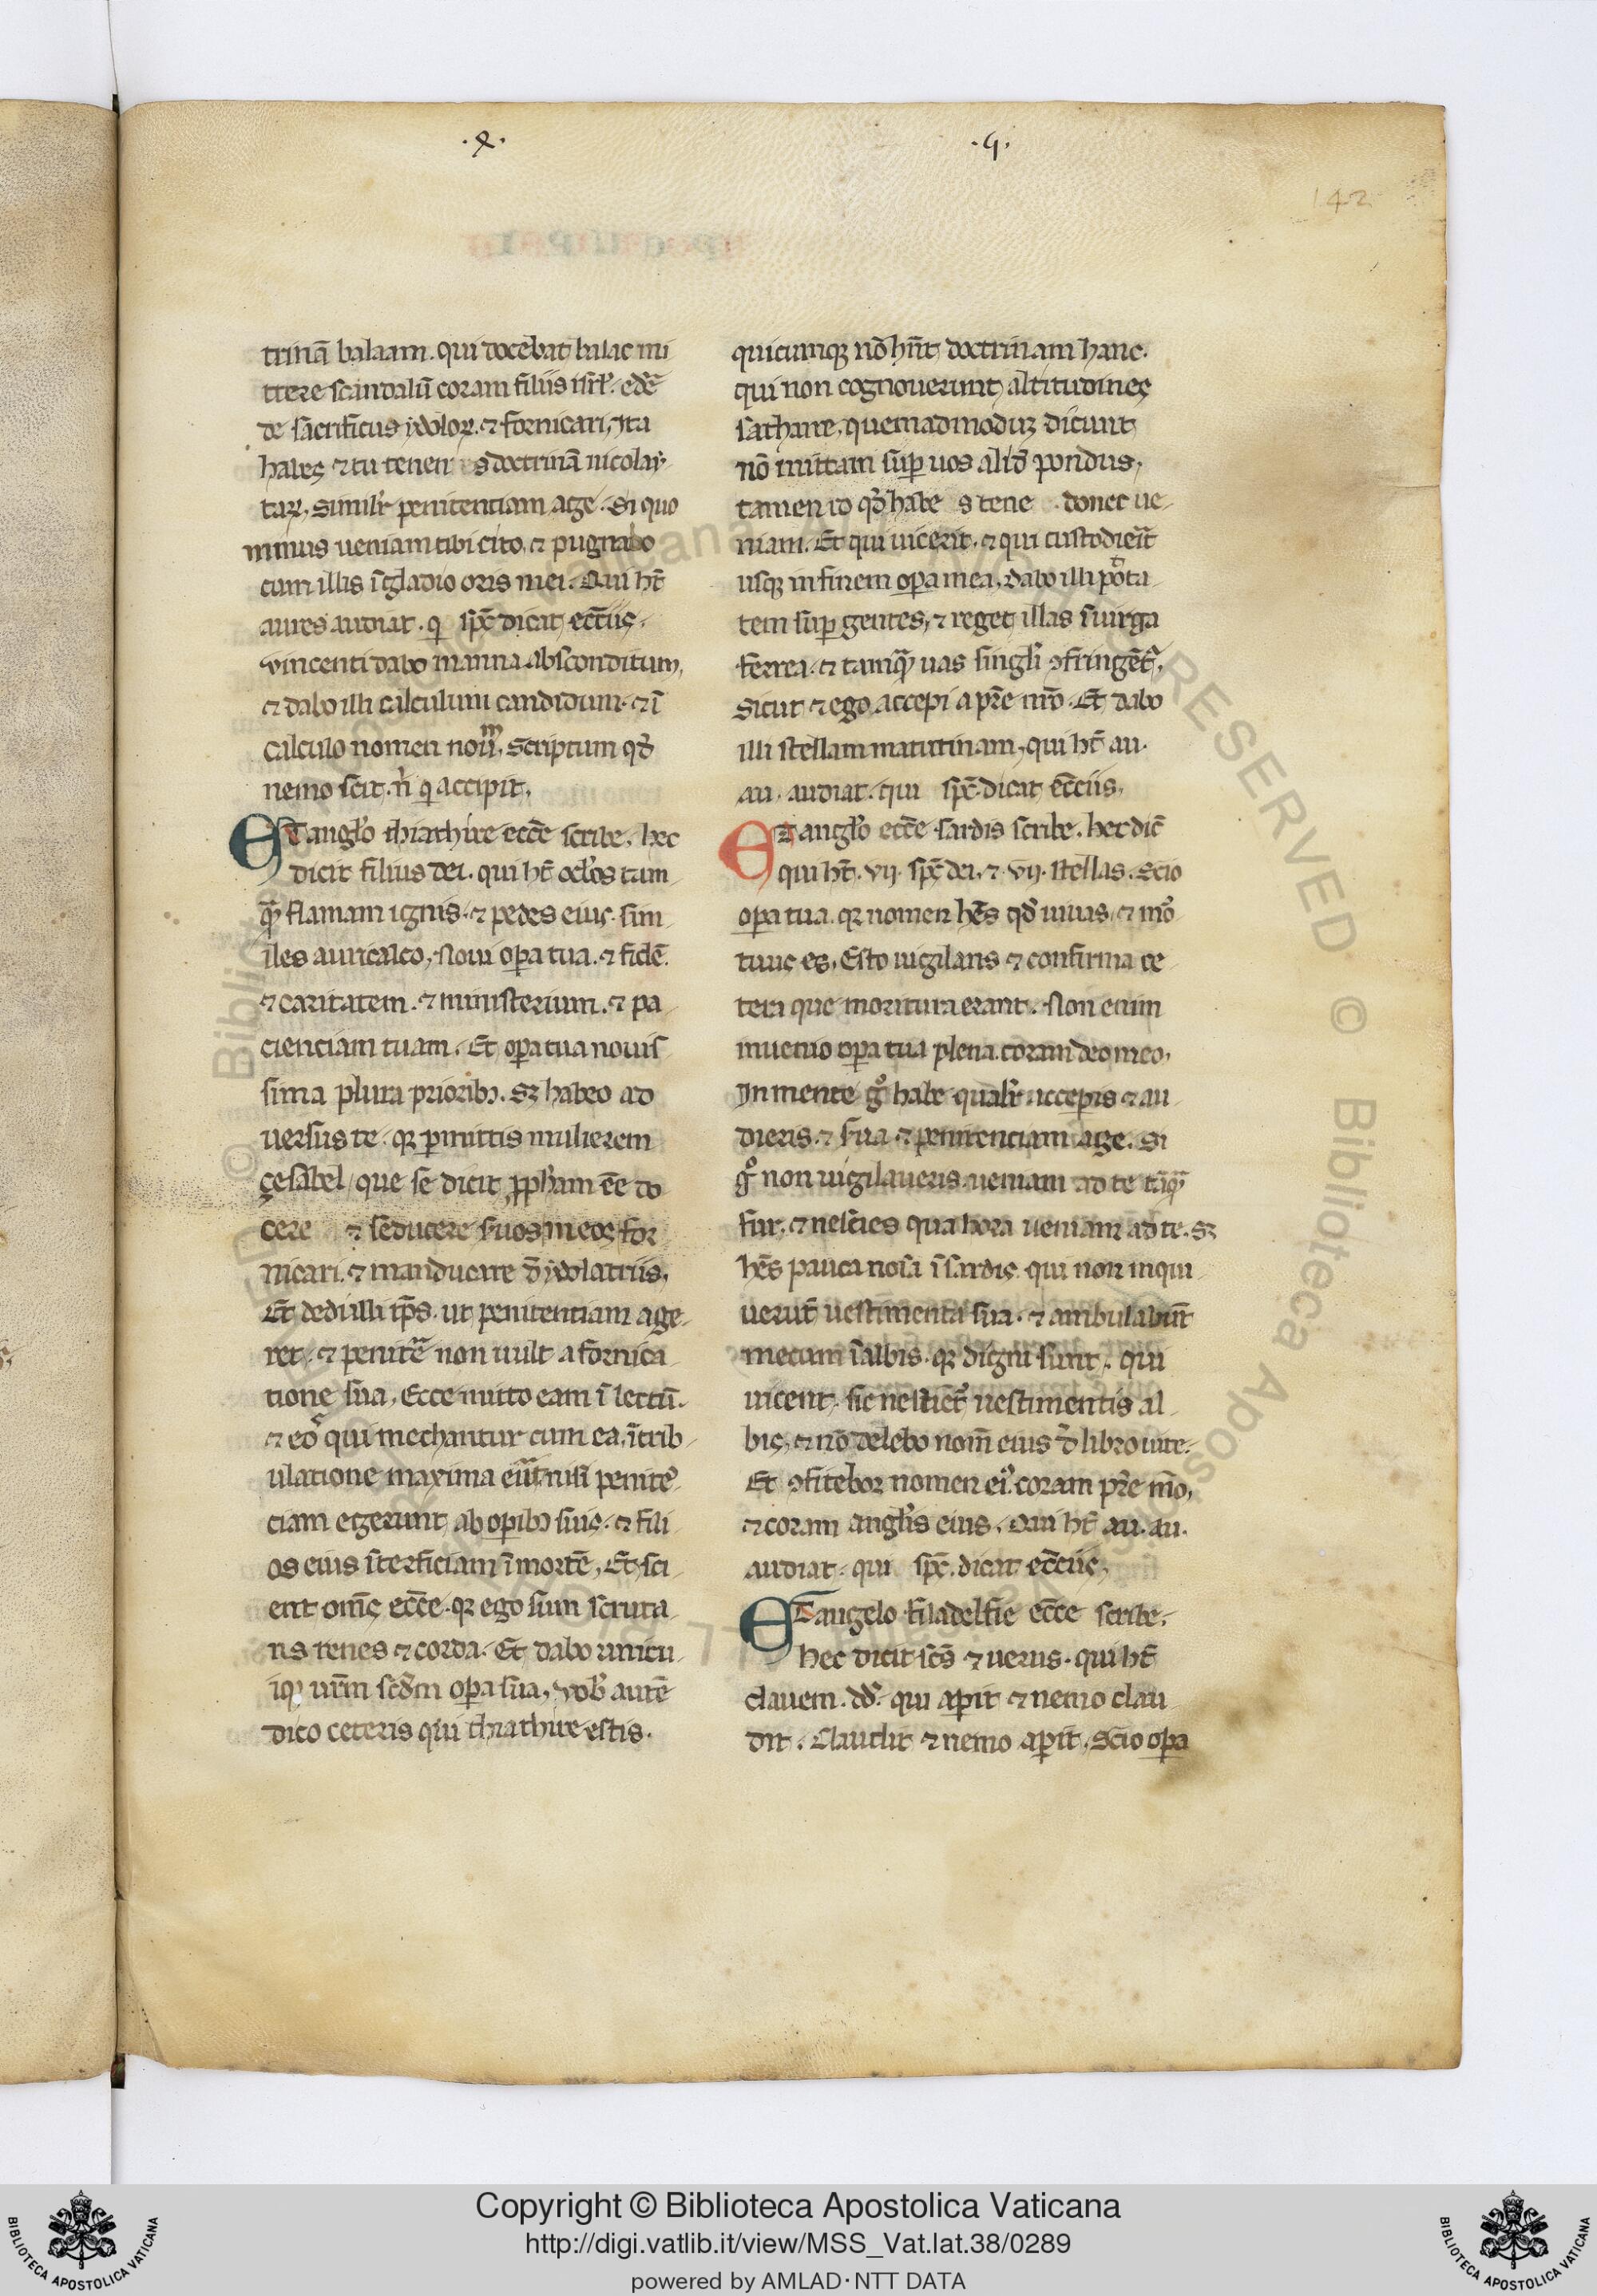 .x.
.4.
142
trinā balaam. qui docebat balac mi
ttere scandalū coram filiis isrl̄. edē
de sacrificiis ydoloꝝ. ⁊ fornicari, Ita
habes ⁊ tu tenen es doctrinā nicolay
taꝝ, similr̄ penitentiam age. Si quo
minus ueniam tibi cito, ⁊ pugnabo
cum illis ī gladio oris mei. Qui ht̄
aures audiat. qͥ spc̄ dicat ecc̄iis.
vincenti dabo manna absconditum,
⁊ dabo illi calculum candidum. ⁊ ī
calculo nomen nouū, scriptum qd̄
nemo scit. n̄ qͥ accipit.
ET anglo thiathire ecc̄e scribe, hec
dicit filius dei. qui ht̄ oclos tam
qͣꝫ flamam ignis. ⁊ pedes eius. sim
iles auricalco, Noui oꝑa tua. ⁊ fidē.
⁊ caritatem. ⁊ ministerium. ⁊ pa
cienciam tuam. Et oꝑa tua nouis
sima plura prioribꝫ. Sꝫ habeo ad
uersus te. qꝛ ꝑmittis mulierem
çesabel, que se dicit ꝓph̄am ēe do
cere ⁊ seducere suos meos for
nicari. ⁊ manducare d̄ ydolatriis,
Et dedi illi tp̄s. ut penitentiam age
ret. ⁊ penitē non uult a fornica
tione sua, Ecce mitto eam ī lectū.
⁊ eoˢ qui mechantur cum ea, ī trib
ulatione maxima eūt nisi penitē
ciam egerunt ab oꝑibꝫ suis. ⁊ fili
os eius īterficiam ī mortē, Et sci
ent om̄s ecc̄e. qꝛ ego sum scruta
ns renes ⁊ corda. Et dabo unicu
iqꝫ ur̄m scd̄m oꝑa sua, Vob̄ autē
dico ceteris qui thiathire estis.
quicumqꝫ nō hn̄t doctrinam hanc.
qui non cognouerunt altitudines
sathane, quemadmoduꝫ dicunt
nō mittam suꝑ uos alid̄ pondus,
tamen id qd̄ habe s tene donec ue
niam. Et qui uicerit. ⁊ qui custodieīt
usqꝫ in finem oꝑa mea, dabo illi pōta
tem suꝑ gentes, ⁊ reget illas ī uirga
ferrea. ⁊ tamqͣꝫ uas singli ꝯfringētͬ,
Sicut ⁊ ego accepi a pr̄e mō. Et dabo
illi stellam matutinam, qui ht̄ au.
au. audiat. qui spc̄ dicat ecc̄iis.
ET anglo ecc̄e sardis scribe. hec dic̄
qui ht̄. vij. spc̄ dei, ⁊ vij. stellas. Scio
oꝑa tua. qꝛ nomen hēs qd̄ uiuas, ⁊ mō
tuus es, Esto uigilans ⁊ confirma ce
tera que moritura erant. Non enim
inuenio oꝑa tua plena coram deo meo,
In mente gͦ habe qualr̄ accepis ⁊ au
dieris. ⁊ sua ⁊ penitenciam age. Si
gͦ non uigilaueris. ueniam ad te tāqͣꝫ
fur. ⁊ nescies qua hora ueniam ad te. Sꝫ
hēs pauca noīa ī sardis qui non inqui
uerūt uestimenta sua. ⁊ ambulabūt
mecum ī albis. qꝛ digni sunt. qui
uicerit. sic uestietͬ uestimentis al
bis, ⁊ nō delebo nom̄ eius d̄ libro uite.
Et ꝯfitebor nomen ei᷒. coram pr̄e mō,
⁊ coram anglis eius. Qui ht̄ au. au.
audiat. qui spc̄. dicat ecc̄iis,
ET angelo filadelfie ecc̄e scribe,
hec dicit scs̄ ⁊ uerus. qui ht̄
clauem. dd̄. qui aꝑit ⁊ nemo clau
dit. Claudit ⁊ nemo aꝑit, Scio oꝑa
Copyright © Biblioteca Apostolica Vaticana
http://digi.vatlib.it/view/MSS_Vat.lat.38/0289
powered by AMLAD·NTT DATA
BIBLIOTECA APOSTOLICA VATICANA
BIBLIOTECA APOSTOLICA VATICANA